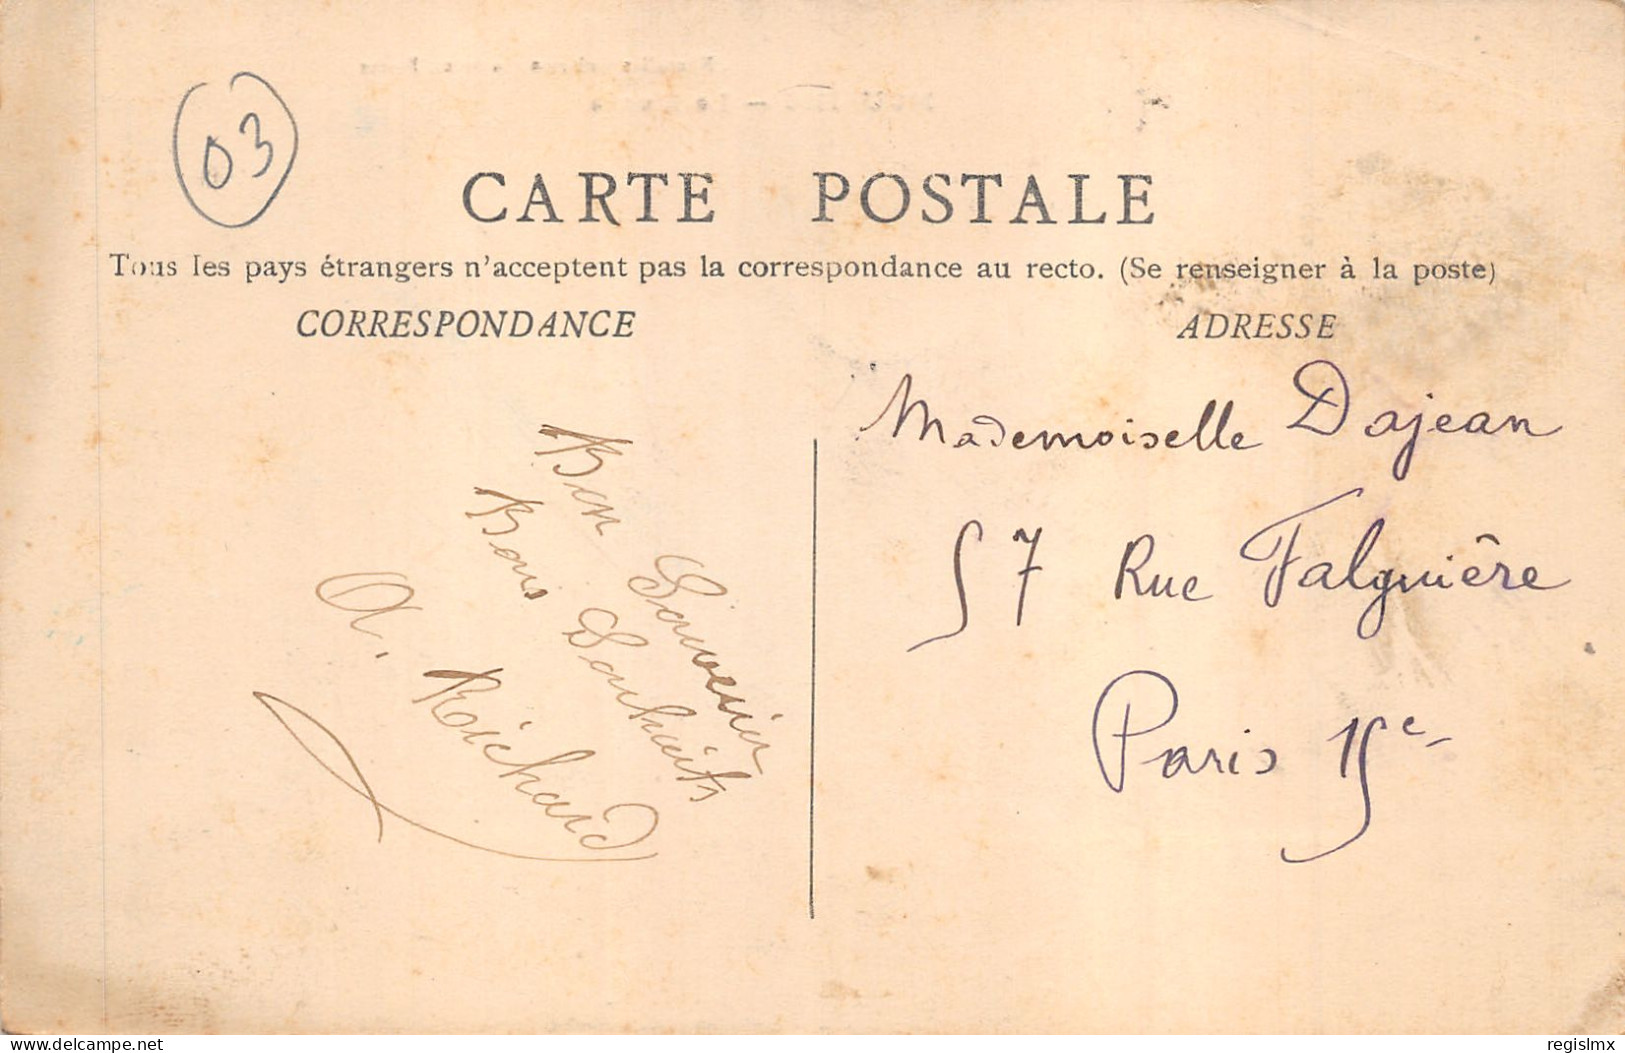 03
CARTE POSTALE
Tous les pays étrangers n'acceptent pas la correspondance au recto. (Se renseigner à la poste)
CORRESPONDANCE
Bon Souvenir
Bons Souhaits
A. Richard
ADRESSE
Mademoiselle Dajean
57 Rue Falguière
Paris 15e
delcampe.net
regislmx